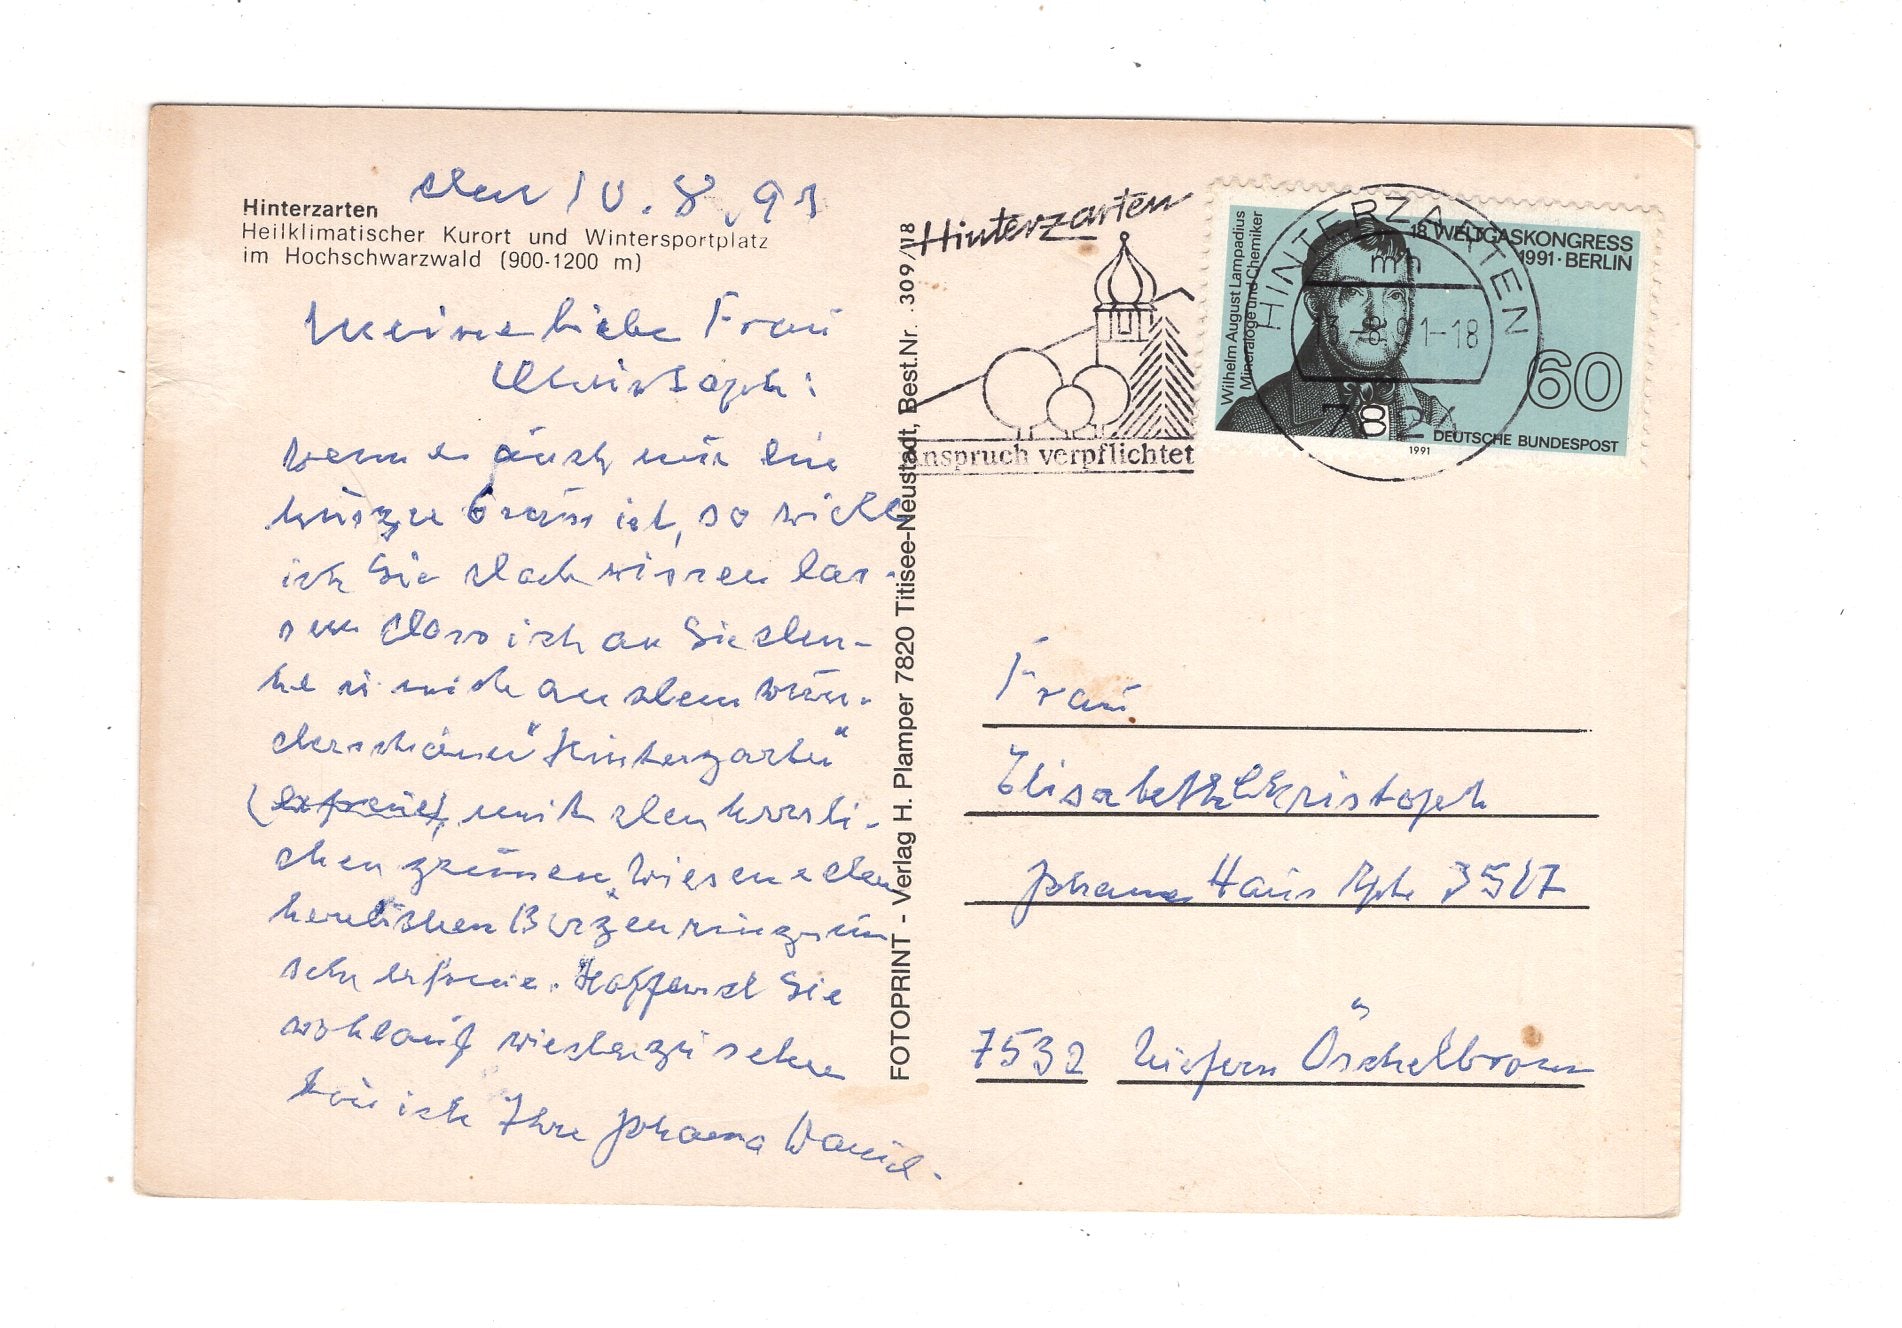 Hinterzarten
Heilklimatischer Kurort und Wintersportplatz
im Hochschwarzwald (900-1200 m)
den 10.8.91
Meine liebe Frau
Christoph!
wenn es auch nur ein
kurzer Gruss ist, so will
ich Sie doch wissen las-
sen dass ich an Sie den-
ke u. mich an dem wun-
derschönen "Hinterzarten"
mit den herrli-
chen grünen Wiesen
herrlichen Bergen ringsum
sehr erfreue. Hoffend Sie
wohlauf wiederzusehen
bin ich Ihre Johanna
FOTOPRINT - Verlag H. Plamper 7820 Titisee-Neustadt, Best.Nr. 309/118
Hinterzarten
nspruch verpflichtet
HINTERZARTEN
mn
13.-8.91-18
7824
Wilhelm August Lampadius
Mineraloge und Chemiker
18. WELTGASKONGRESS
1991·BERLIN
60
DEUTSCHE BUNDESPOST
1991
Frau
Elisabeth Christoph
Johanna Haus
7532 Niefern Öschelbronn